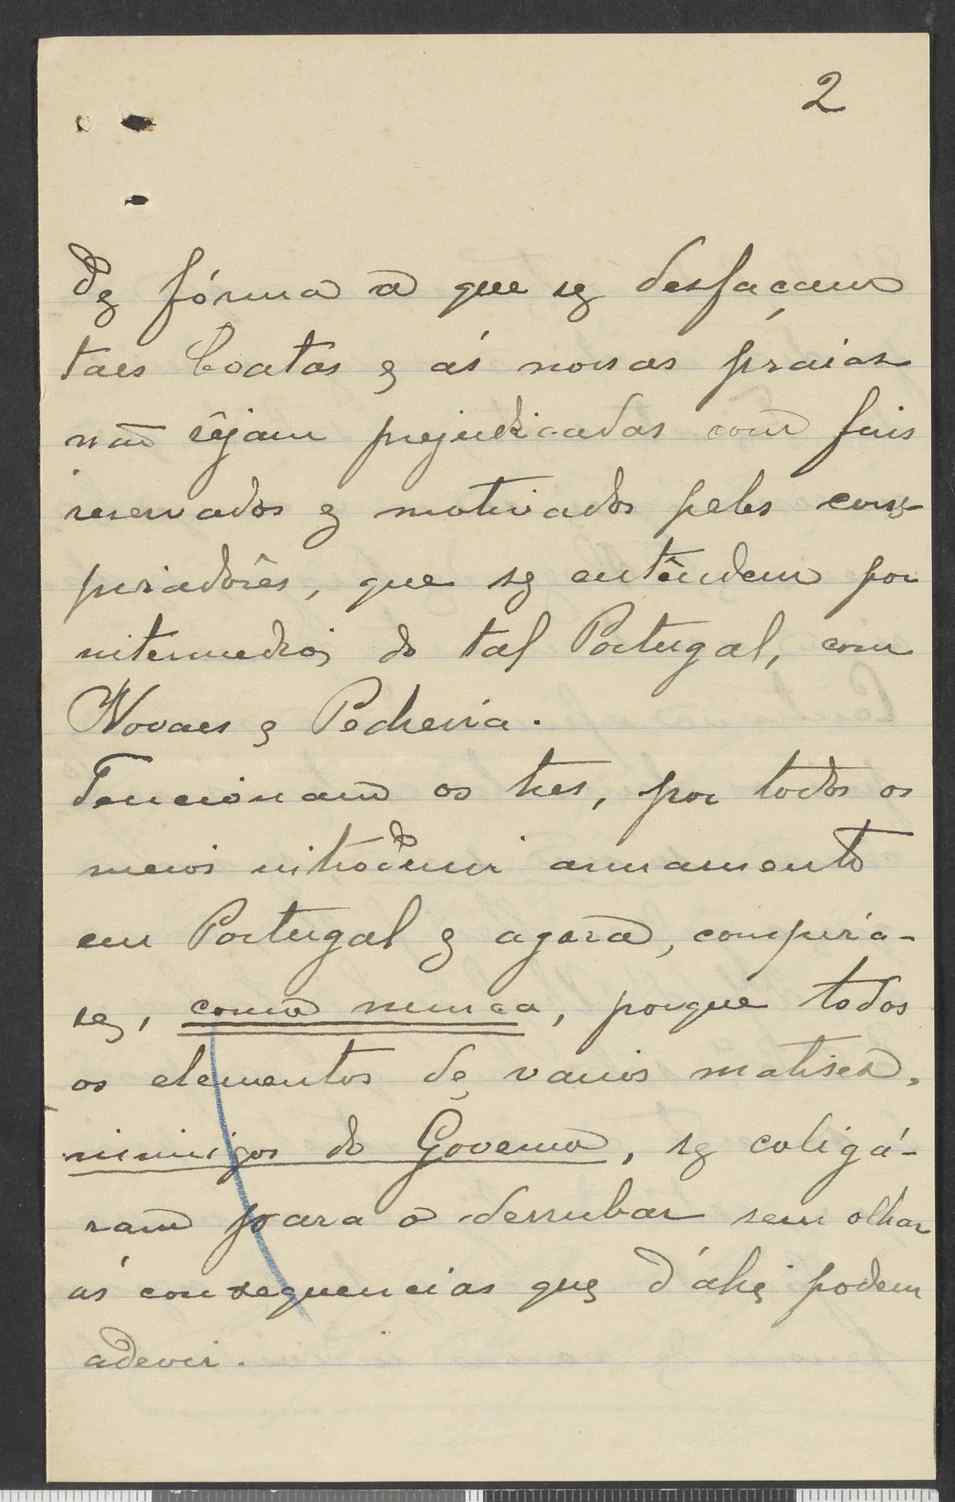 2
De fórma a que se desfaçam
taes boatos e ás nossas práias
não sêjam prejudicadas com fins
reservados e motivados pelos cons-
piradôres, que se entêndem por
intermedio do tal Portugal, com
Novaes e
Tencionam os tres, por todos os
meios introduzir armamento
em Portugal e agora, conspira-
se, como nunca, porque todos
os elementos de varios matises,
inimigos do Governo, se coligá-
ram para o derrubar sem olhar
ás consequencias que d'ahi podem
adevir.